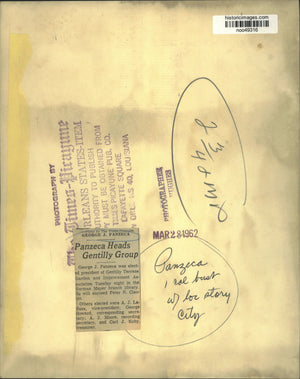 historicimages.com
noo49316
PHOTOGRAPH BY
The Times-Picayune
ORLEANS STATES-ITEM
AUTHORITY TO PUBLISH
MUST BE OBTAINED FROM
TIMES PICAYUNE PUB. CO.
LAFAYETTE SQUARE
LOUISIANA
PHOTOGRAPHER
2 3/4
MAR 28 1962
GEORGE J. PANZECA
Panzeca Heads
Gentilly Group
George J. Panzeca was elect-
president of Gentilly Terrace
Garden and Improvement As-
sociation Tuesday night in the
Norman Mayer branch library.
He will succeed Peter N.
Others elected were A. J.
vice-president; George
corresponding secre-
tary; A. J. Moore, recording
secretary, and Carl J.
treasurer.
Panzeca
1 col bust
w/ loc story
City